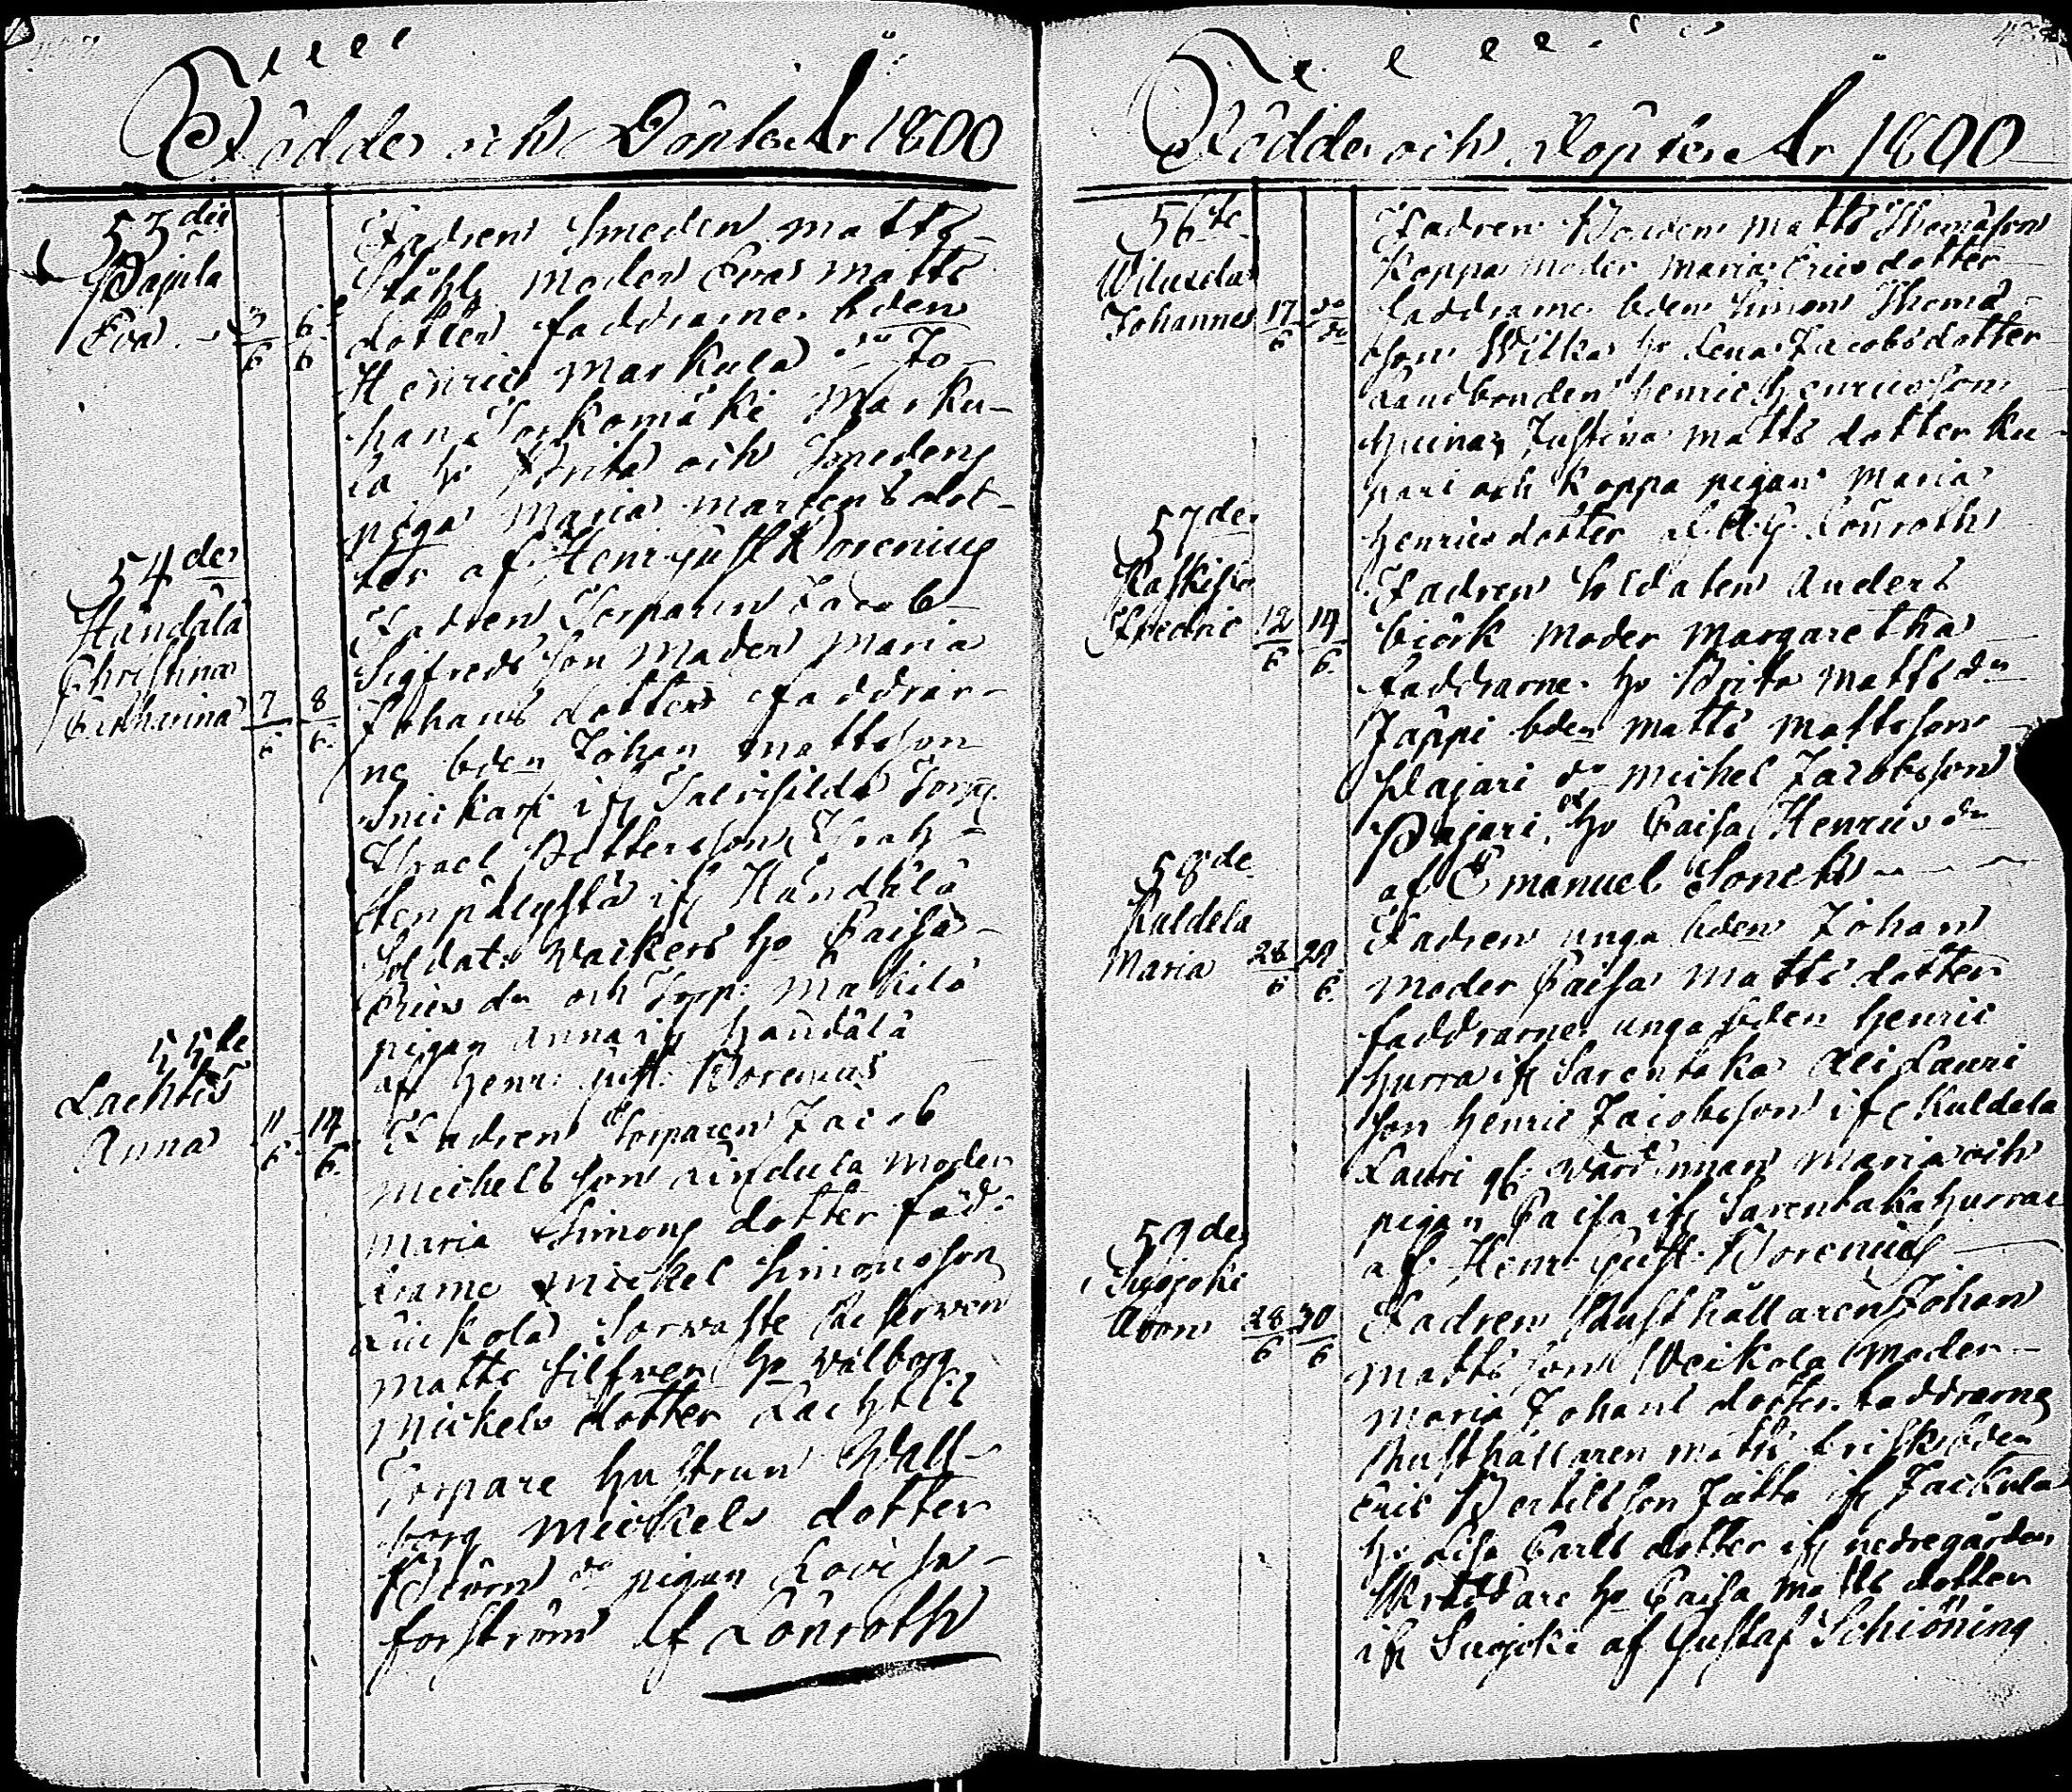 Födde och Döpte År 1800
53die
Pajula
Eva 3/6 6/6
Fadren Smeden Matts
Ståhl Moder Eva Matts
dotter faddrarne bden
Henric Markula do Jo-
han Markı-
la ho Brita och Smedens
piga Maria Martens dot-
ter af Henr Gust Borenius
54de
Handala
Christina
Catharina 7/6 8/6
Fadren Torparen Jacob
Sigfreds son Moder Maria
Johans dotter faddrar-
ne bden Johan Mattsson
Snickari ifr Torp
Israel Pettersson
ifr Handala
Soldat Wackers ho Caisa
Erics dr och Torp: Mackilä
pigan Anna ifr Handala
af Henr: Gust: Borenius
55te
Lachtis
Anna 11/6 14/6
Fadren Torparen Jacob
Michels son Moder
Maria Simons dotter fad-
rarne Mickel Simonsson
Matts Silfver ho Walborg
Mickels dotter Lachtis
Torpare hustrun Wall-
borg Mickels dotter
Björn do pigan Lovisa
Forström af Lönroth
Födde och Döpte År 1800
56te
Wiluxela
Johannes 17/6 do/do
Fadren Bonden Matts Thomasson
Koppa Moder Maria Ericsdotter
faddrarne bden Simon Thomas
son Wilka ho Lena Jacobsdotter
Landbonden Henric Henricsson
Justina Matts dotter Ku-
pari och Koppa pigan Maria
Henricsdotter af Lönroth
57de
Kaskisto
Fredric 12/6 14/6
Fadren Soldaten Anders
Biörk Moder Margaretha
faddrarne ho Brita Matts dr
Jäppi bden Matts Mattsson
Pajari do Michel Jacobsson
Pajari, ho Caisa Henrics dr
af Emanuel Sonck
58de
Kuldela
Maria 28/6 29/6
Fadren unga bden Johan
Moder Caisa Matts dotter
faddrarne unga bden Henric
Hurra ifr Sarentaka Ali Lauri
son Henric Jacobsson ifr Kuldela
Lauri gl: Wärdinnan Maria och
pigan Caisa ifr Sarentaka Hurra
af Henr: Gust: Borenius
59de
Suojoki
Aron 28/6 30/6
Fadren Rusthållaren Johan
Matts son Weikola Moder
Maria Johans dotter faddrarne
Rusthållaren Matts Frisk bden
Eric Bertills son Jätto ifr Jackola
ho Lisa Carls dotter ifr nedregården
Skräddare ho Caisa Matts dotter
ifr Suojoki af Gustaf Schiöning